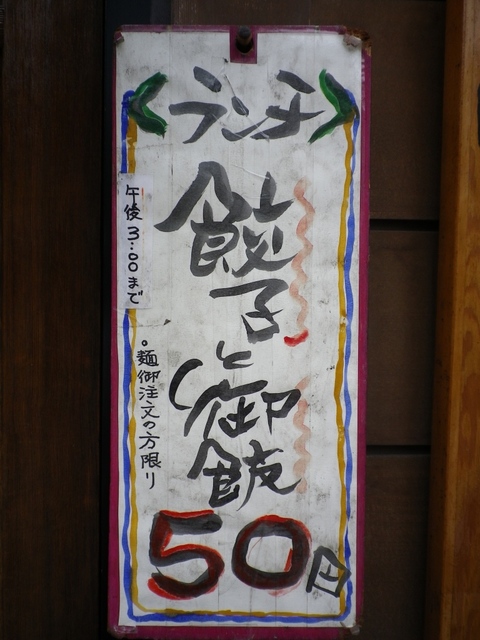 <ランチ>
餃子
と御飯
50円
午後3:00まで
・麺御注文の方限り